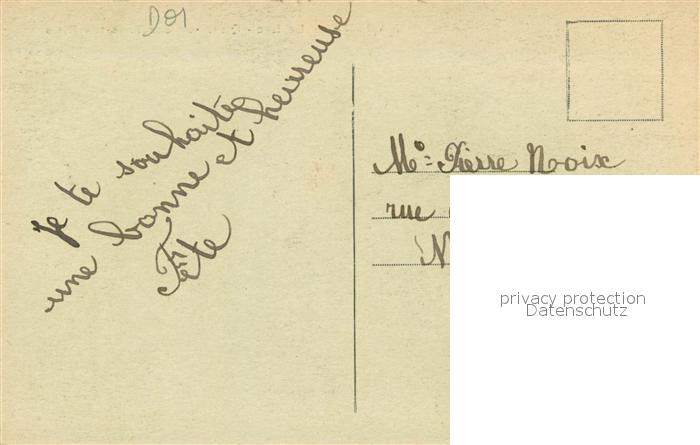 D01
Je te souhaite
une bonne et heureuse
Fête
Mo= Pierre Noix
rue
N
privacy protection
Datenschutz